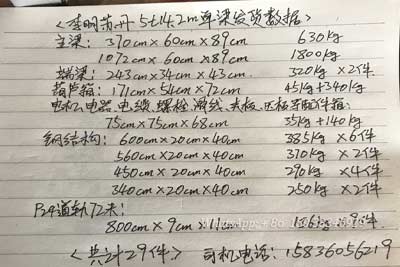 <李明苏丹 5t14.2m单梁发货数据>
主梁: 370cm×60cm×89cm 630kg
1072cm×60cm×89cm 1800kg
端梁: 243cm×34cm×43cm 320kg×2件
葫芦箱: 171cm×54cm×72cm 45kg+340kg
电机、电器、电缆、螺栓、滑线、夹板、压板等配件箱:
75cm×75cm×68cm 35kg+140kg
钢结构: 600cm×20cm×40cm 385kg×6件
560cm×20cm×40cm 370kg×2件
450cm×20cm×40cm 290kg×4件
340cm×20cm×40cm 250kg×2件
P24道轨72米:
800cm×9cm×11cm ×9件
<共计29件> 司机电话: 15836056219